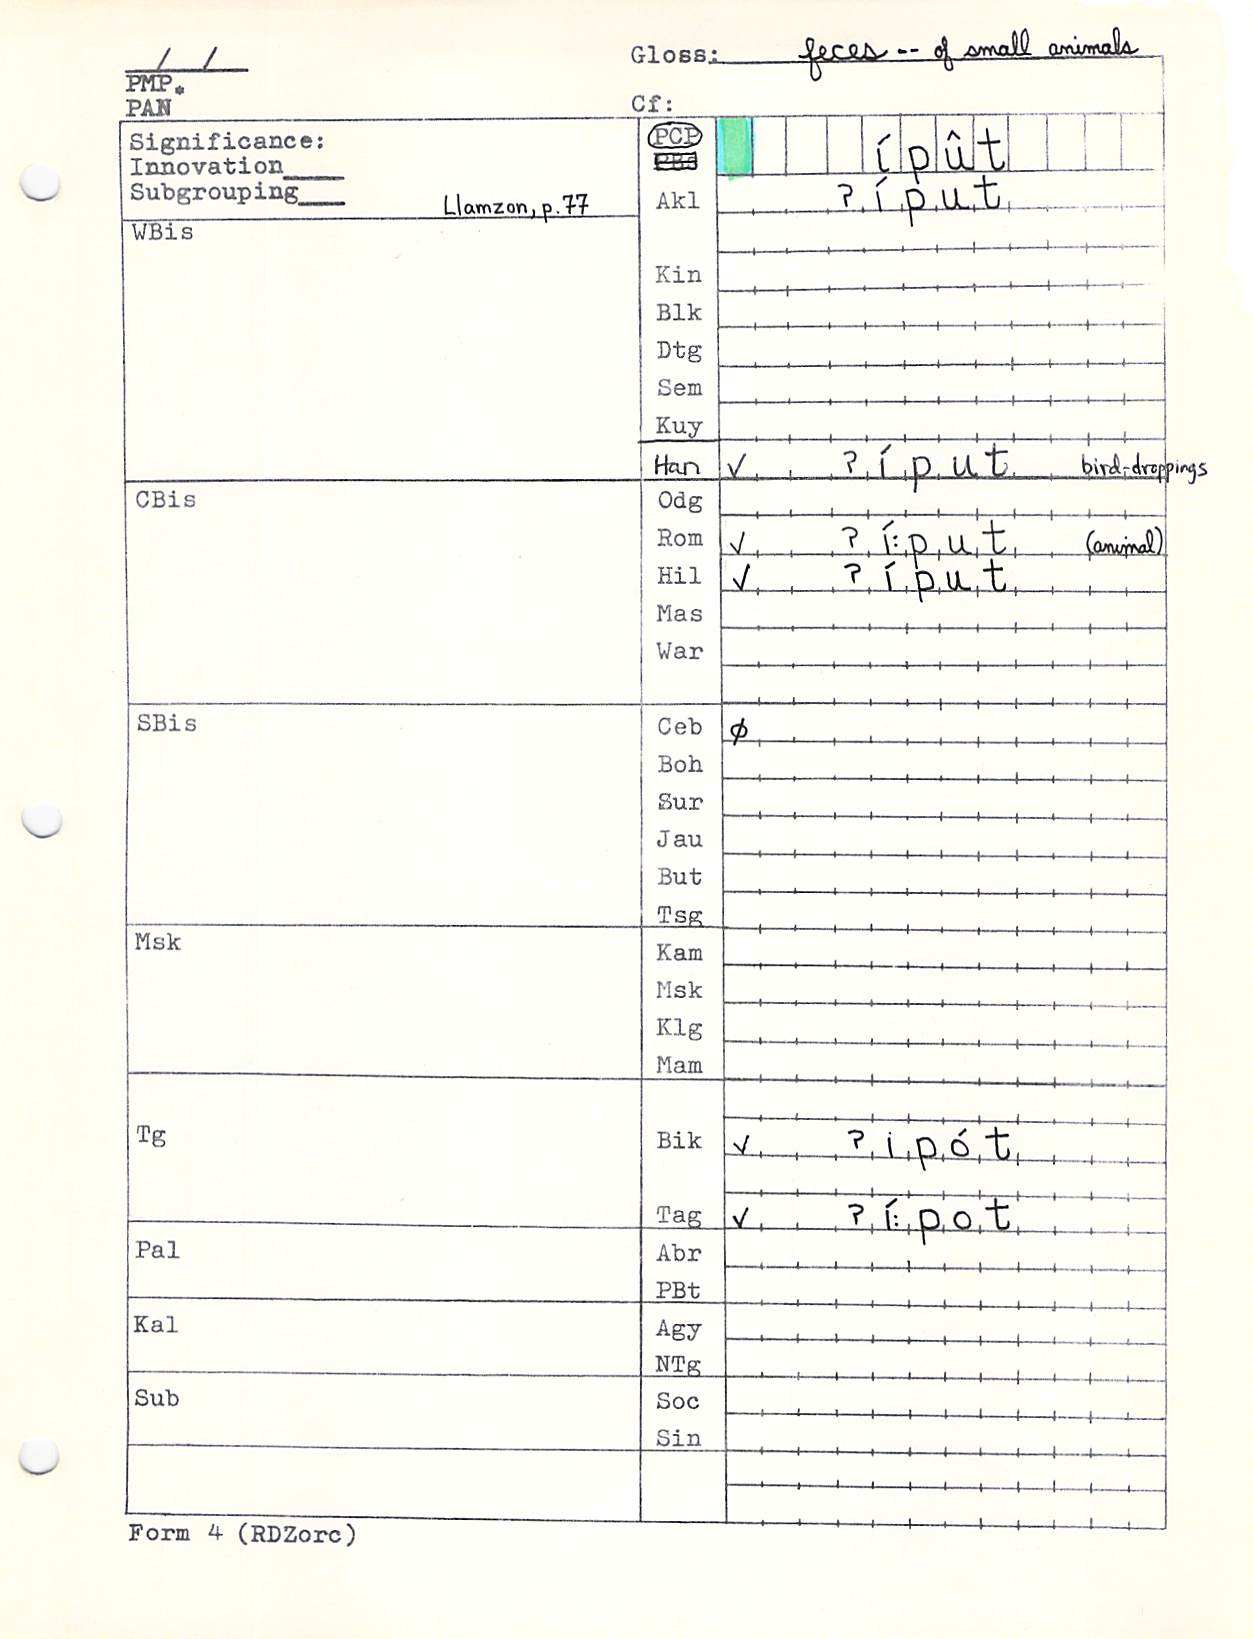 / /
Gloss: feces -- of small animals
PMP.
PAN
Cf:
Significance:
Innovation____
Subgrouping___
Llamzon, p.77
PCP ípût
PBs
Akl ʔíput
WBis
Kin
Blk
Dtg
Sem
Kuy
Han ✓ ʔíput bird-droppings
CBis
Odg
Rom ✓ ʔí:put (animal)
Hil ✓ ʔíput
Mas
War
SBis
Ceb ø
Boh
Sur
Jau
But
Tsg
Msk
Kam
Msk
Klg
Mam
Tg
Bik ✓ ʔipót
Tag ✓ ʔí:pot
Pal
Abr
PBt
Kal
Agy
NTg
Sub
Soc
Sin
Form 4 (RDZorc)